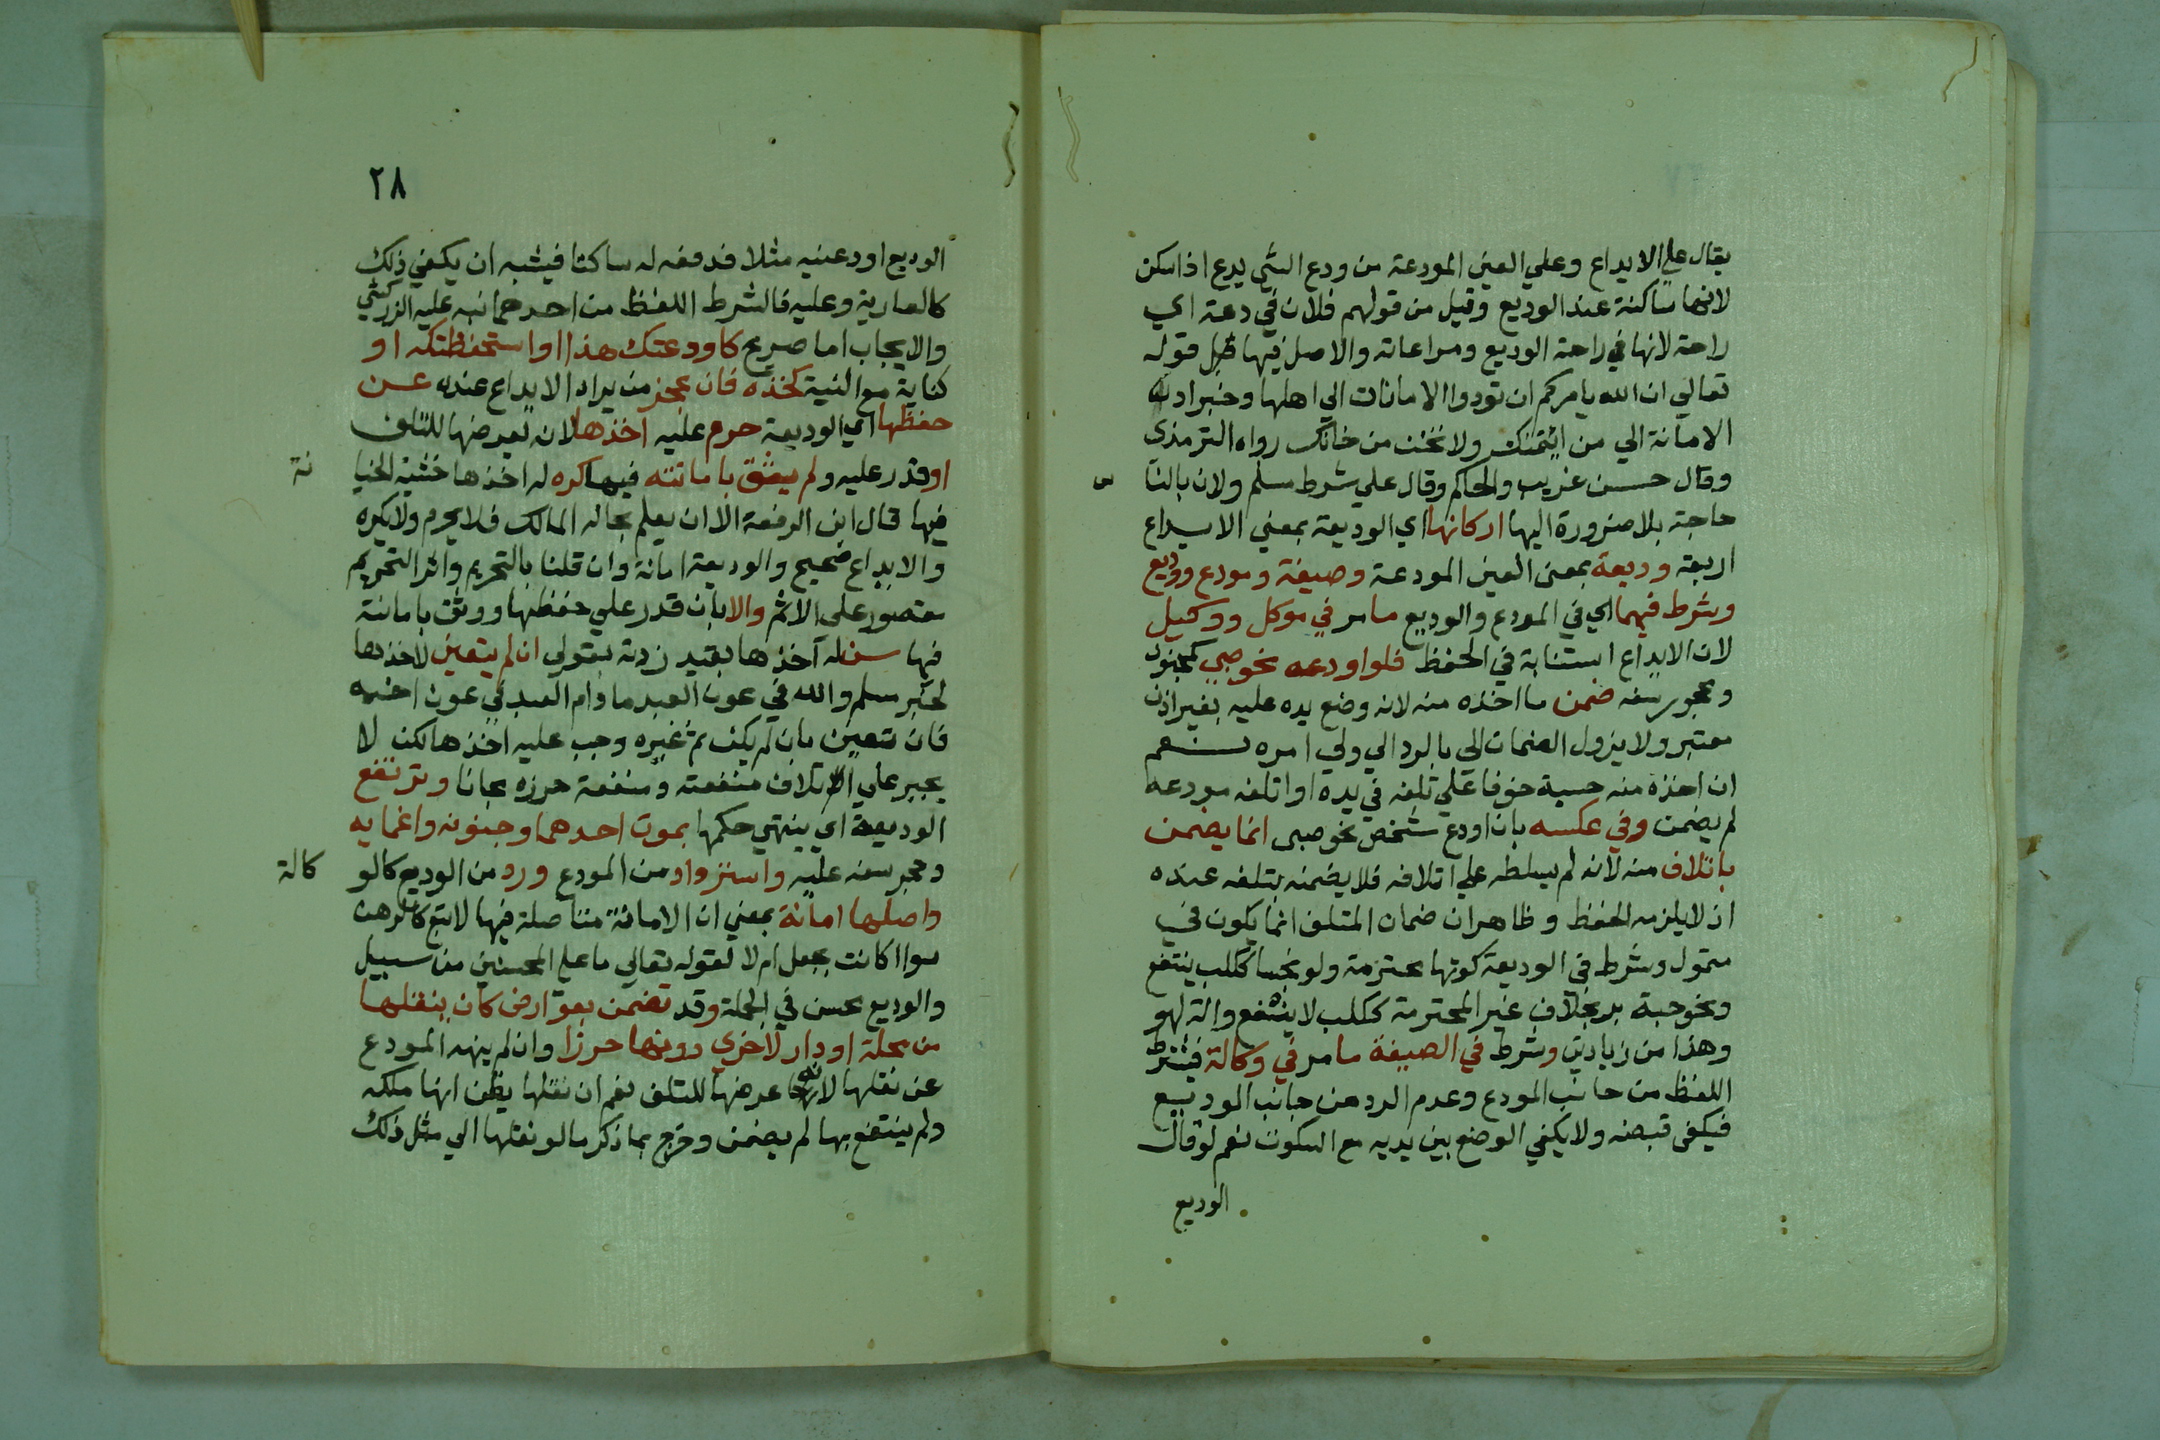 يقال علي الايداع وعلي العين المودعة من ودع الشي يدع اذا سكن
لانها ساكنة عند الوديع وقيل من قولهم فلان في دعة اي
راحة لانها في راحة الوديع ومراعاته والاصل فيها قبل قوله
تعالي ان الله يامركم ان تودوا الامانات الي اهلها وخبر اد
الامانة الي من ائتمنك ولا تخن من خانك رواه الترمذي
وقال حسن غريب والحاكم وقال علي شرط مسلم ولان بالنا س
حاجة بلا ضرورة اليها اركانها اي الوديعة بمعني الايداع
اربعة وديعة بمعنى العين المودعة وصيغة ومودع ووديع
وشرط فيهما اي في المودع والوديع ما مر في موكل ووكيل
لان الايداع استنابة في الحفظ فلو اودعه نحو صبي كمجنون
ومحجور سفه ضمن ما اخذه منه لانه وضع يده عليه بغير اذن
معتبر ولا يزول الضمان الي بالرد الي ولي امره نعم
ان اخذه منه حسبة خوفا علي تلفه في يده او اتلفه مودعه
لم يضمن وفي عكسه بان اودع شخص نحو صبى انما يضمن
باتلاف منه لانه لم يسلطه علي اتلافه فلا يضمنه بتلفه عنده
اذ لا يلزمه الحفظ وظاهر ان ضمان المتلف انما يكون في
متمول وشرط في الوديعة كونها محترمة ولو نجسا ككلب ينتفع
ونحو حبة بر بخلاف غير المحترمة ككلب لا ينتفع والة لهو
وهذا من زيادتي وشرط في الصيغة ما مر في وكالة فيشترط
اللفظ من جانب المودع وعدم الرد من جانب الوديع
فيكفي قبضه ولا يكفي الوضع بين يديه مع السكوت نعم لو قال
الوديع
٢٨
الوديع اودعنيه مثلا فدفعه له ساكتا فيشبه ان يكفي ذلك
كالعارية وعليه فالشرط اللفظ من احدهما نبه عليه الزركشي
والايجاب اما صريح كاودعتك هذا او استحفظتكه او
كناية مع النية كخذه فان عجز من يراد الايداع عنده عن
حفظها اي الوديعة حرم عليه اخذها لانه يعرضها للتلف
او قدر عليه ولم يثق بامانته فيها كره له اخذها خشية الخيا نة
فيها قال ابن الرفعة الا ان يعلم بحاله المالك فلا يحرم ولا يكره
والايداع صحيح والوديعة امانة وان قلنا بالتحريم واثر التحريم
مقصور على الاثم والا بان قدر علي حفظها ووثق بامانته
فيها سن له اخذها بقيد زدته بقولي ان لم يتعين لاخذها
لخبر مسلم والله في عون العبد ما دام العبد في عون اخيه
فان تعين بان لم يكن ثم غيره وجب عليه اخذها لكن لا
يجبر علي اتلاف منفعته ومنفعة حرزه مجانا وترتفع
الوديعة اي ينتهي حكمها بموت احدهما وجنونه واغمايه
وحجر سفه عليه واسترداد من المودع ورد من الوديع كالو كالة
واصلها امانة بمعني ان الامانة متاصلة فيها لا تبع كالرهن
سوا كانت بجعل ام لا لقوله تعالي ما علي المحسنين من سبيل
والوديع محسن في الجملة وقد تضمن بعوارض كان ينقلها
من محلة او دار لاخري دونها حرزا وان لم ينهه المودع
عن نقلها لانه عرضها للتلف نعم ان نقلها يظن انها ملكه
ولم ينتفع بها لم يضمن وخرج بما ذكر ما لو نقلها الي مثل ذلك